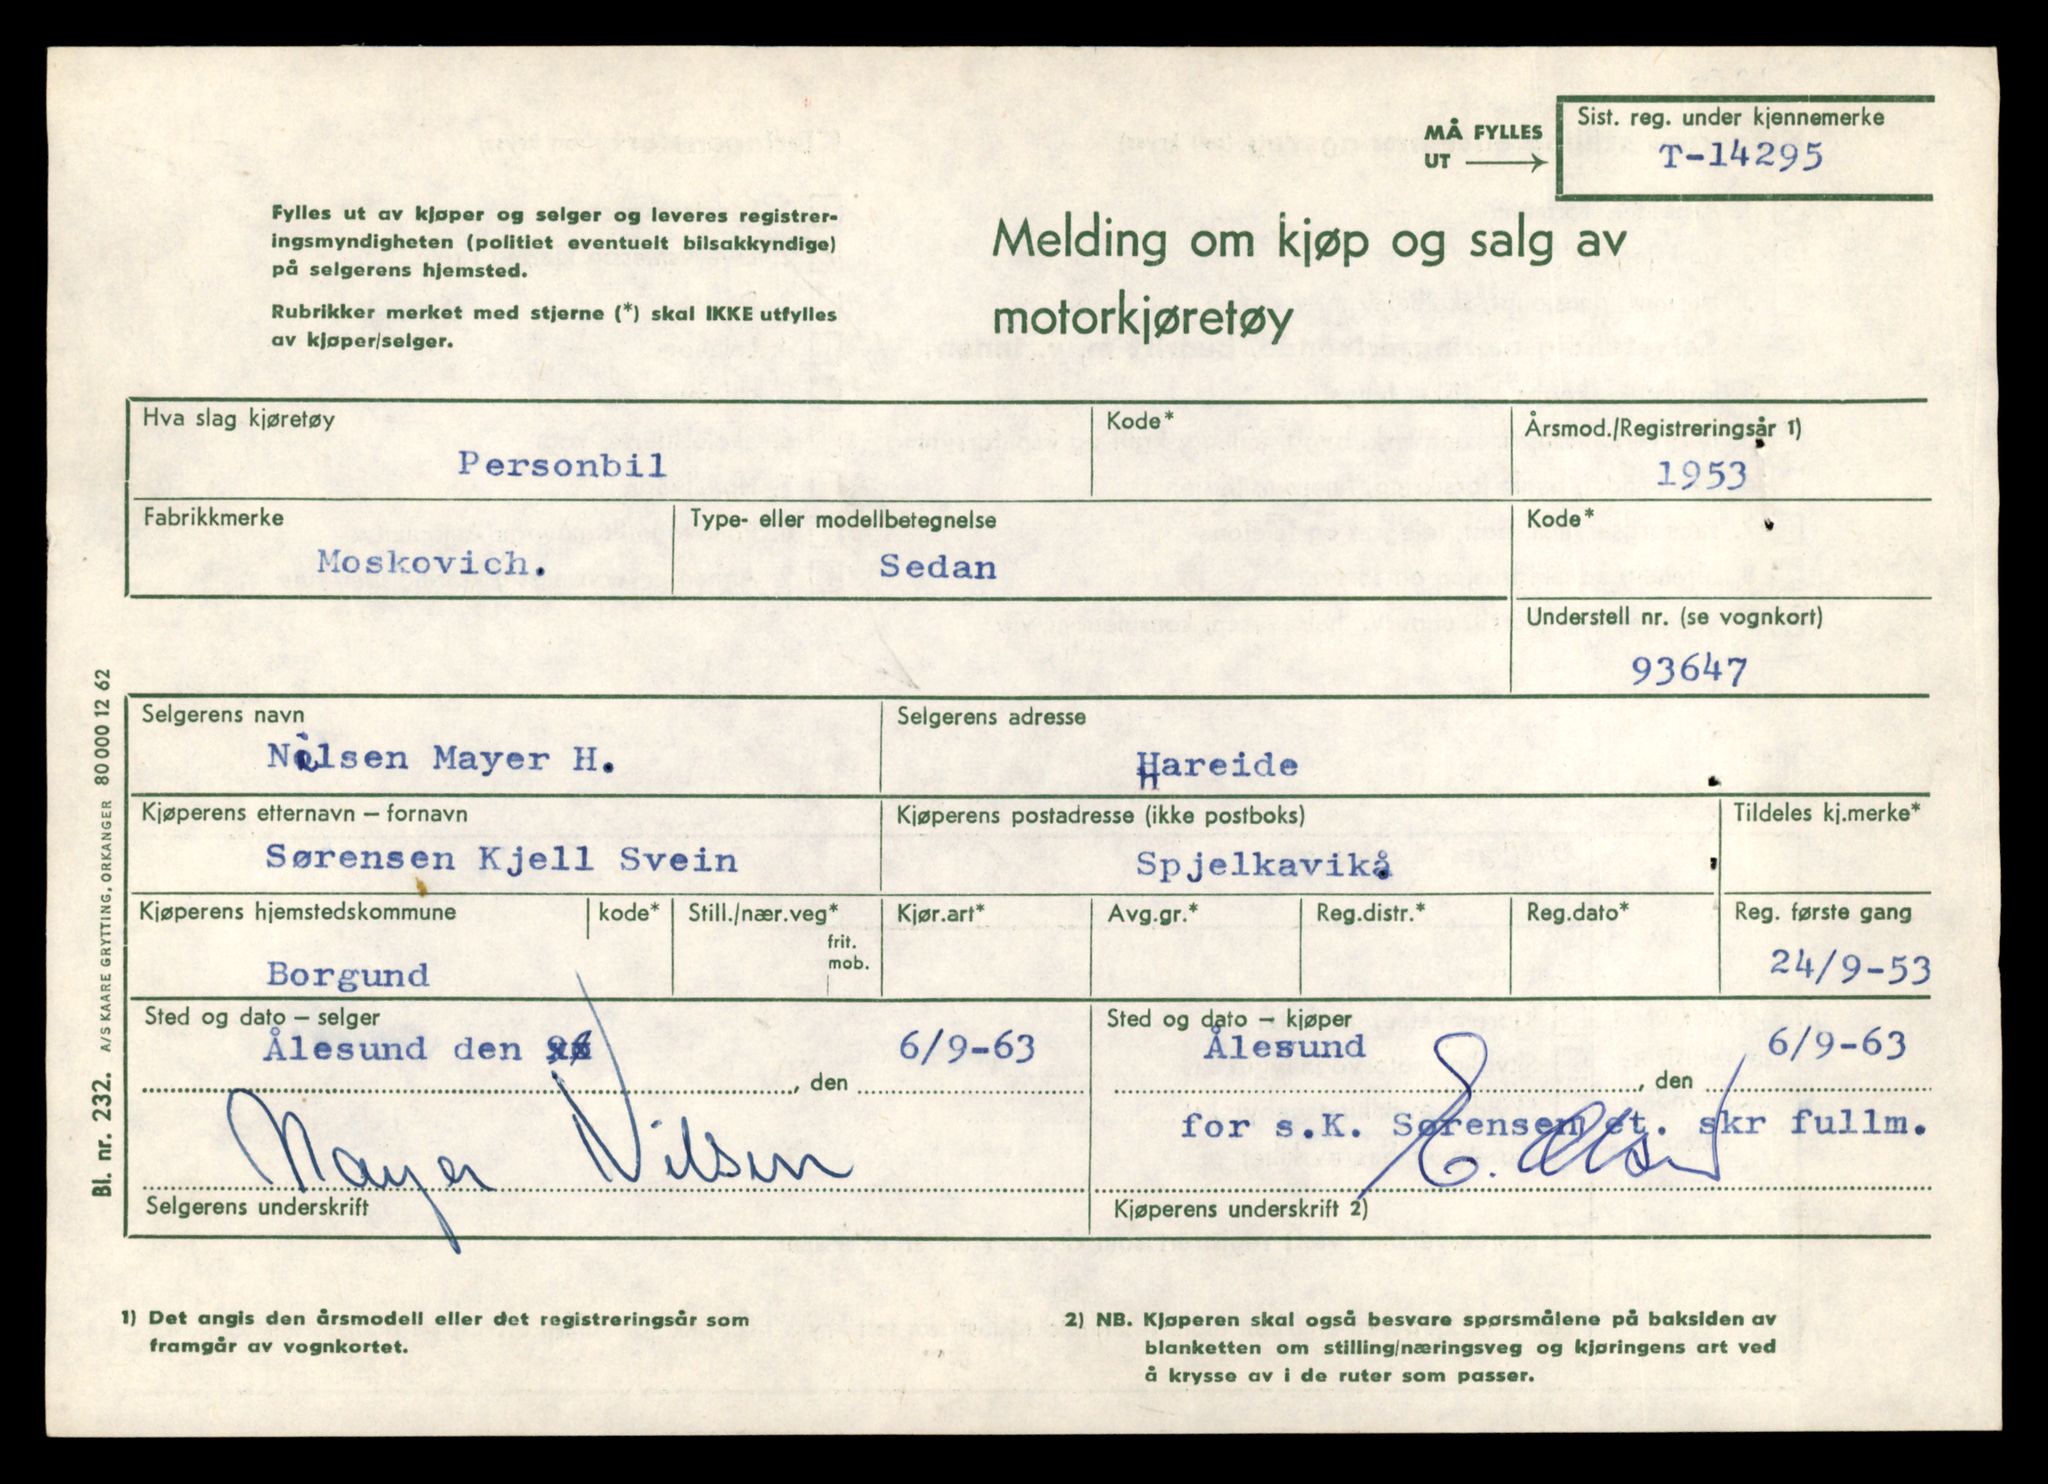 MÅ FYLLES
UT
Sist. reg. under kjennemerke
T-14295
Fylles ut av kjøper og selger og leveres registrer-
ingsmyndigheten (politiet eventuelt bilsakkyndige)
på selgerens hjemsted.
Rubrikker merket med stjerne (*) skal IKKE utfylles
av kjøper/selger.
Melding om kjøp og salg av
motorkjøretøy
Hva slag kjøretøy Kode* Årsmod./Registreringsår 1)
Personbil 1953
Fabrikkmerke Type- eller modellbetegnelse Kode*
Moskovich. Sedan
Understell nr. (se vognkort)
93647
Selgerens navn Selgerens adresse
Nilsen Mayer H. Hareide
Kjøperens etternavn – fornavn Kjøperens postadresse (ikke postboks) Tildeles kj.merke*
Sørensen Kjell Svein Spjelkavik
Kjøperens hjemstedskommune kode* Still./nær.veg* Kjør.art* Avg.gr.* Reg.distr.* Reg.dato* Reg. første gang
frit.
mob.
Borgund 24/9-53
Sted og dato – selger Sted og dato – kjøper
Ålesund den 6/9-63 Ålesund 6/9-63
, den , den
for s.K. Sørensen et. skr fullm.
Mayer Nilsen
Selgerens underskrift Kjøperens underskrift 2)
1) Det angis den årsmodell eller det registreringsår som
framgår av vognkortet.
2) NB. Kjøperen skal også besvare spørsmålene på baksiden av
blanketten om stilling/næringsveg og kjøringens art ved
å krysse av i de ruter som passer.
Bl. nr. 232. A/S KAARE GRYTTING, ORKANGER 80 000 12 62